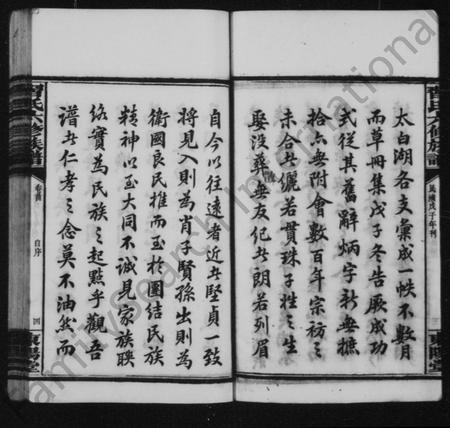 太白湖各支彙成一帙不數月
而草冊集戊子冬告厥成功
式從其舊辭炳字新無摭
拾亦無附會數百年宗祊之
未合者儼若貫珠子姓之生
娶沒葬無友紀者朗若列眉
自今以往遠者近者堅貞一致
將見入則為肖子賢孫出則為
衛國良民推而至於團結民族
精神以至大同不誠見家族聯
絡實為民族之起點乎觀吾
譜者仁孝之念莫不油然而
民國戊子年刊
東陽堂
曾氏六修族譜
卷首
自序
四
東陽堂
FamilySearch International